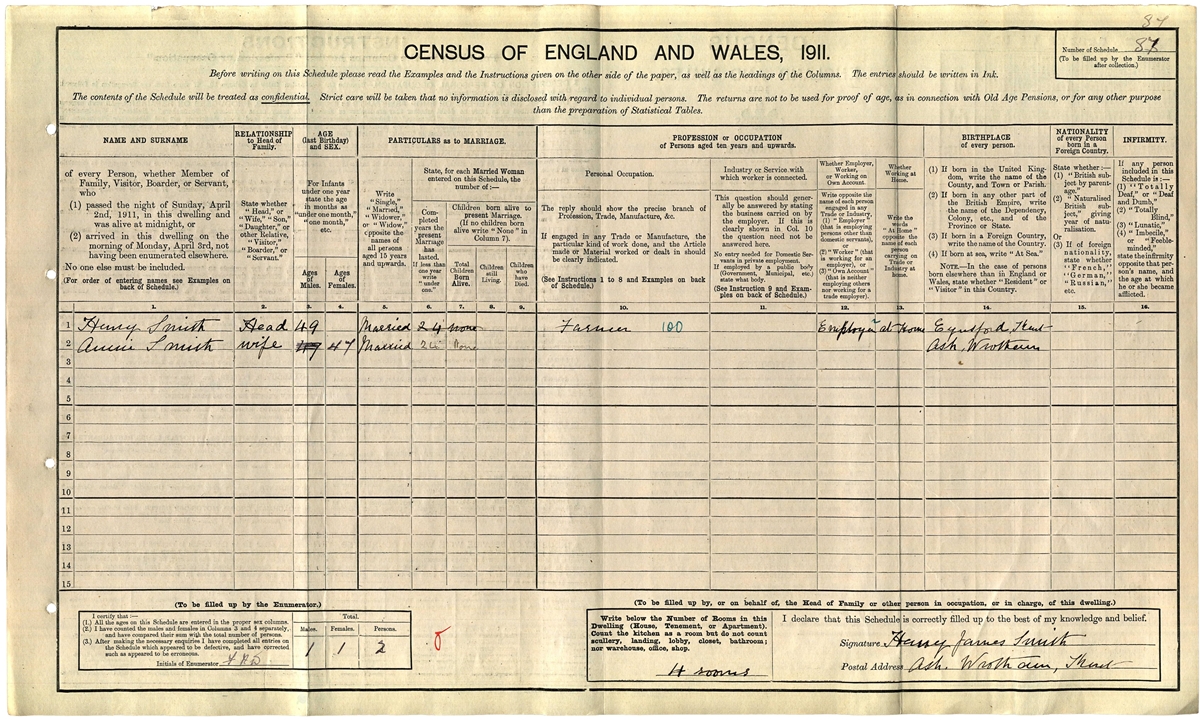 84
CENSUS OF ENGLAND AND WALES, 1911.
Number of Schedule 87
(To be filled up by the Enumerator
after collection.)
Before writing on this Schedule please read the Examples and the Instructions given on the other side of the paper, as well as the headings of the Columns. The entries should be written in Ink.
The contents of the Schedule will be treated as confidential. Strict care will be taken that no information is disclosed with regard to individual persons. The returns are not to be used for proof of age, as in connection with Old Age Pensions, or for any other purpose
than the preparation of Statistical Tables.
NAME AND SURNAME
of every Person, whether Member of
Family, Visitor, Boarder, or Servant,
who
(1) passed the night of Sunday, April
2nd, 1911, in this dwelling and
was alive at midnight, or
(2) arrived in this dwelling on the
morning of Monday, April 3rd, not
having been enumerated elsewhere.
No one else must be included.
(For order of entering names see Examples on
back of Schedule.)
RELATIONSHIP
to Head of
Family.
State whether
"Head," or
"Wife," "Son,"
"Daughter," or
other Relative,
"Visitor,"
"Boarder," or
"Servant."
AGE
(last Birthday)
and SEX.
For Infants
under one year
state the age
in months as
"under one month,"
"one month,"
etc.
Ages
of
Males.
Ages
of
Females.
PARTICULARS as to MARRIAGE.
Write
"Single,"
"Married,"
"Widower,"
or "Widow,"
opposite the
names of
all persons
aged 15 years
and upwards.
State, for each Married Woman
entered on this Schedule, the
number of:—
Com-
pleted
years the
present
Marriage
has
lasted.
If less than
one year
write
"under
one."
Children born alive to
present Marriage.
(If no children born
alive write "None" in
Column 7).
Total
Children
Born
Alive.
Children
still
Living.
Children
who
have
Died.
PROFESSION or OCCUPATION
of Persons aged ten years and upwards.
Personal Occupation.
The reply should show the precise branch of
Profession, Trade, Manufacture, &c.
If engaged in any Trade or Manufacture, the
particular kind of work done, and the Article
made or Material worked or dealt in should
be clearly indicated.
(See Instructions 1 to 8 and Examples on back
of Schedule.)
Industry or Service with
which worker is connected.
This question should gener-
ally be answered by stating
the business carried on
by the employer. If this is
clearly shown in Col. 10
the question need not be
answered here.
No entry needed for Domestic Ser-
vants in private employment.
If employed by a public body
(Government, Municipal, etc.)
state what body.
(See Instruction 9 and Exam-
ples on back of Schedule.)
Whether Employer,
Worker,
or Working on
Own Account.
Write opposite the
name of each person
engaged in any
Trade or Industry,
(1) "Employer"
(that is employing
persons other than
domestic servants),
or
(2) "Worker" (that
is working for an
employer), or
(3) "Own Account"
(that is neither
employing others
nor working for a
trade employer).
Whether
Working at
Home.
Write the
words
"At Home"
opposite the
name of each
person
carrying on
Trade or
Industry at
home.
BIRTHPLACE
of every person.
(1) If born in the United King-
dom, write the name of the
County, and Town or Parish.
(2) If born in any other part of
the British Empire, write
the name of the Dependency,
Colony, etc., and of the
Province or State.
(3) If born in a Foreign Country,
write the name of the Country.
(4) If born at sea, write "At Sea."
NOTE.—In the case of persons
born elsewhere than in England or
Wales, state whether "Resident" or
"Visitor" in this Country.
NATIONALITY
of every Person
born in a
Foreign Country.
State whether:—
(1) "British sub-
ject by parent-
age."
(2) "Naturalised
British sub-
ject," giving
year of natu-
ralisation.
Or
(3) If of foreign
nationality,
state whether
"French,"
"German,"
"Russian,"
etc.
INFIRMITY.
If any person
included in this
Schedule is:—
(1) "Totally
Deaf," or "Deaf
and Dumb,"
(2) "Totally
Blind,"
(3) "Lunatic,"
(4) "Imbecile,"
or "Feeble-
minded,"
state the infirmity
opposite that per-
son's name, and
the age at which
he or she became
afflicted.
1. 2. 3. 4. 5. 6. 7. 8. 9. 10. 11. 12. 13. 14. 15. 16.
1 Henry Smith Head 49 Married 24 none Farmer 100 Employer at Home Eynsford, Kent
2 Annie Smith wife 47 Married 24 None Ash, Wrotham
3
4
5
6
7
8
9
10
11
12
13
14
15
(To be filled up by the Enumerator.)
I certify that:—
(1.) All the ages on this Schedule are entered in the proper sex columns.
(2.) I have counted the males and females in Columns 3 and 4 separately,
and have compared their sum with the total number of persons.
(3.) After making the necessary enquiries I have completed all entries on
the Schedule which appeared to be defective, and have corrected
such as appeared to be erroneous.
Initials of Enumerator
Total.
Males. Females. Persons.
1 1 2
(To be filled up by, or on behalf of, the Head of Family or other person in occupation, or in charge, of this dwelling.)
Write below the Number of Rooms in this
Dwelling (House, Tenement, or Apartment).
Count the kitchen as a room but do not count
scullery, landing, lobby, closet, bathroom;
nor warehouse, office, shop.
4 rooms
I declare that this Schedule is correctly filled up to the best of my knowledge and belief.
Signature Henry James Smith
Postal Address Ash, Wrotham, Kent